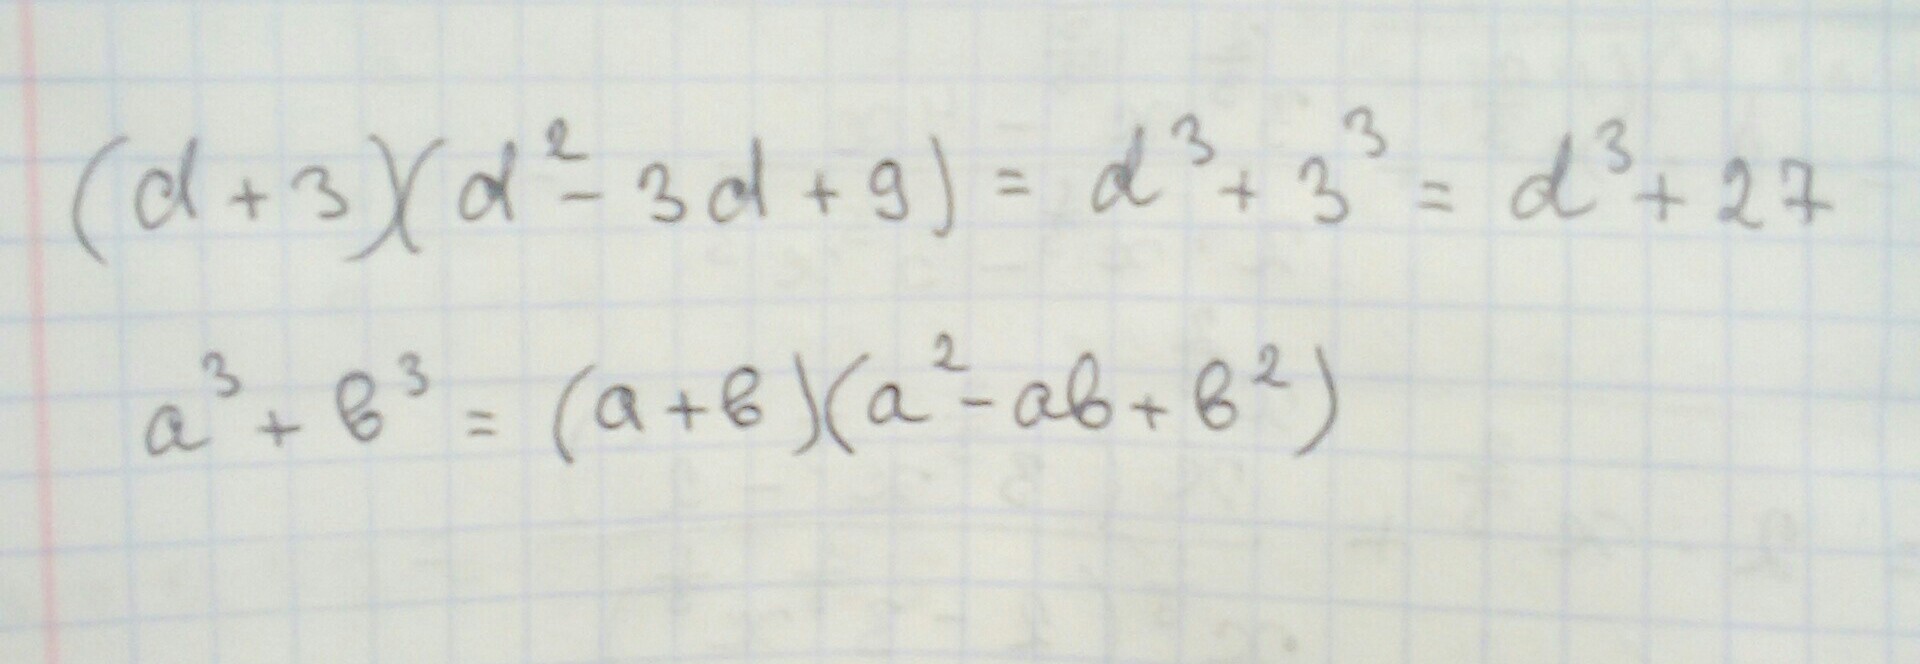 (d+3)(d²-3d+9)=d³+3³=d³+27
a³+b³=(a+b)(a²-ab+b²)